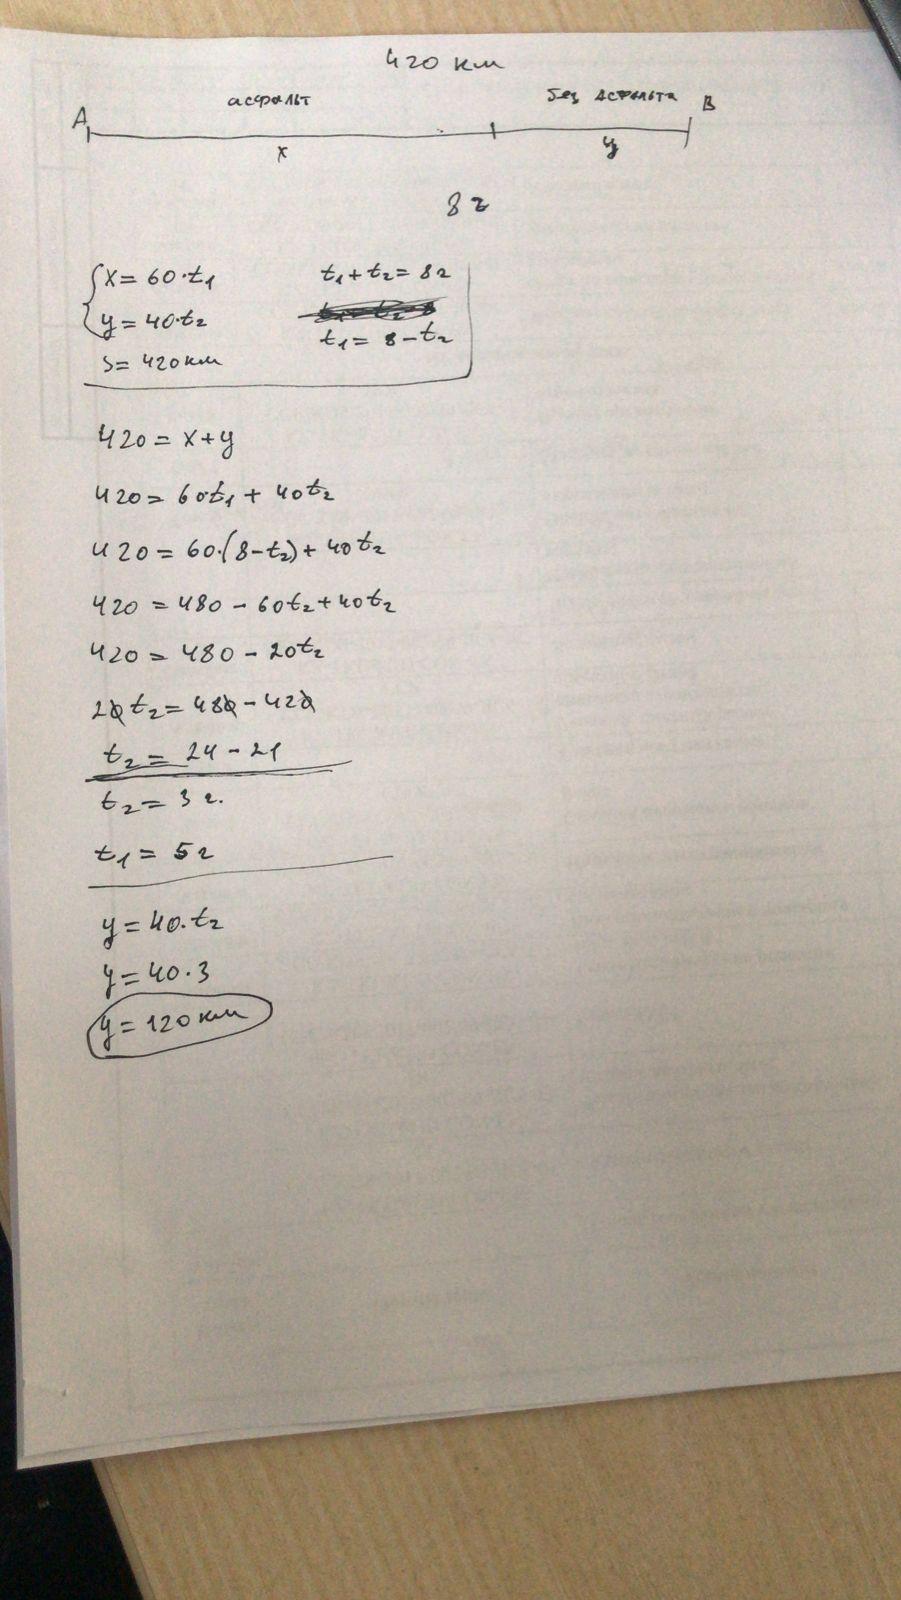 420 км
асфальт без асфальта
A B
x y
8 г
x = 60·t₁ t₁ + t₂ = 8г
y = 40·t₂
t₁ = 8 - t₂
S = 420 км
420 = x + y
420 = 60·t₁ + 40t₂
420 = 60·(8 - t₂) + 40t₂
420 = 480 - 60t₂ + 40t₂
420 = 480 - 20t₂
20 t₂ = 480 - 420
t₂ = 24 - 21
t₂ = 3 г.
t₁ = 5г
y = 40·t₂
y = 40·3
y = 120 км